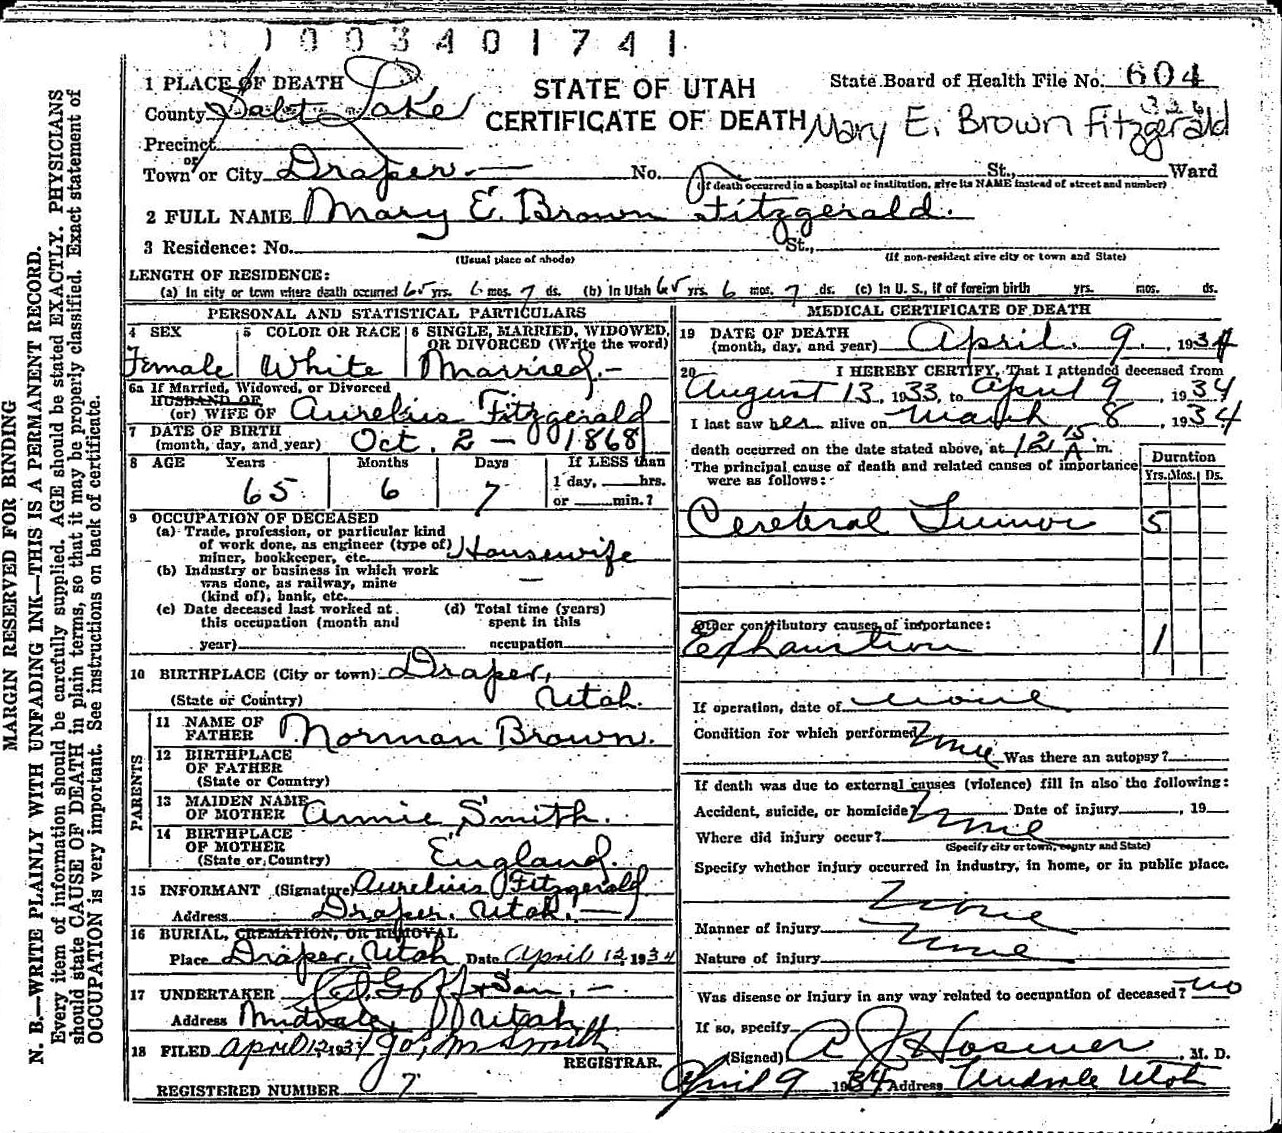 1003401741
1 PLACE OF DEATH
County Salt Lake
STATE OF UTAH
CERTIFICATE OF DEATH
State Board of Health File No. 604
336
Mary E. Brown Fitzgerald
Precinct
or
Town or City Draper.— No. St., Ward
(If death occurred in a hospital or institution, give its NAME instead of street and number)
2 FULL NAME Mary E. Brown Fitzgerald.
3 Residence: No. St.,
(Usual place of abode) (If non-resident give city or town and State)
LENGTH OF RESIDENCE:
(a) In city or town where death occurred 65 yrs. 6 mos. 7 ds. (b) In Utah 65 yrs. 6 mos. 7 ds. (c) In U. S., if of foreign birth yrs. mos. ds.
PERSONAL AND STATISTICAL PARTICULARS
4 SEX
Female
5 COLOR OR RACE
White
6 SINGLE, MARRIED, WIDOWED, OR DIVORCED (Write the word)
Married.—
6a If Married, Widowed, or Divorced
HUSBAND OF
(or) WIFE OF Aurelius Fitzgerald
7 DATE OF BIRTH
(month, day, and year) Oct. 2 — 1868
8 AGE Years Months Days If LESS than
65 6 7 1 day, hrs.
or min.?
9 OCCUPATION OF DECEASED
(a) Trade, profession, or particular kind
of work done, as engineer (type of)
miner, bookkeeper, etc. Housewife
(b) Industry or business in which work
was done, as railway, mine
(kind of), bank, etc. —
(c) Date deceased last worked at
this occupation (month and
year)
(d) Total time (years)
spent in this
occupation
10 BIRTHPLACE (City or town) Draper,
(State or Country) Utah.
PARENTS
11 NAME OF
FATHER Norman Brown.
12 BIRTHPLACE
OF FATHER
(State or Country)
13 MAIDEN NAME
OF MOTHER Annie Smith.
14 BIRTHPLACE
OF MOTHER
(State or Country) England.
15 INFORMANT (Signature) Aurelius Fitzgerald
Address Draper, Utah.—
16 BURIAL, CREMATION, OR REMOVAL
Place Draper, Utah Date April 12, 1934
17 UNDERTAKER Goff & Son.—
Address Midvale, Utah.
18 FILED April 12, 1934 Jos. M Smith
REGISTRAR.
REGISTERED NUMBER 7
MEDICAL CERTIFICATE OF DEATH
19 DATE OF DEATH
(month, day, and year) April. 9., 1934
20 I HEREBY CERTIFY, That I attended deceased from
August 13, 1933, to April 9, 1934
I last saw her alive on March 8, 1934
death occurred on the date stated above, at 12 15 A m.
The principal cause of death and related causes of importance
were as follows:
Duration
Yrs. Mos. Ds.
Cerebral Tumor 5
Other contributory causes of importance:
Exhaustion 1
If operation, date of none
Condition for which performed None Was there an autopsy?
If death was due to external causes (violence) fill in also the following:
Accident, suicide, or homicide? None Date of injury , 19
Where did injury occur?
(Specify city or town, county and State)
Specify whether injury occurred in industry, in home, or in public place.
None
Manner of injury None
Nature of injury
Was disease or injury in any way related to occupation of deceased? no
If so, specify
(Signed) A J Hosmer, M. D.
April 9 1934 Address Midvale Utah
MARGIN RESERVED FOR BINDING
N. B.—WRITE PLAINLY WITH UNFADING INK—THIS IS A PERMANENT RECORD.
Every item of information should be carefully supplied. AGE should be stated EXACTLY. PHYSICIANS
should state CAUSE OF DEATH in plain terms, so that it may be properly classified. Exact statement of
OCCUPATION is very important. See instructions on back of certificate.